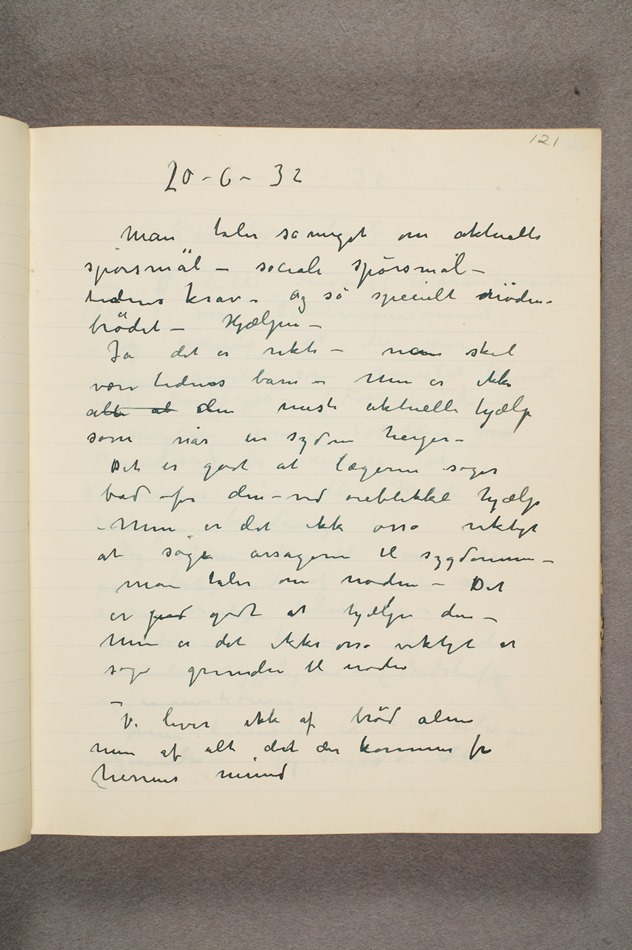 121
20-6-32
Man taler så meget om aktuelle
spörsmål – sociale spörsmål –
tidens krav – Og så specielt nöden –
brödet – Hjælpen –
Ja det er rikti – man skal
være tidens barn – Men er ikke
alt at den mest aktuelle hjælp
som når en sygdom herjer –
Det er godt at lægerne søger
bod for den – ved øieblikkel hjælp
– Men er det ikke osså viktigt
at søge årsagerne til sygdommen –
Man taler om nøden – Det
er god godt at hjelpe den –
Men er det ikke osså viktigt at
søge grunden til nøden
Vi lever ikke af bröd alene
men af alt det der kommer fra
herrens mund